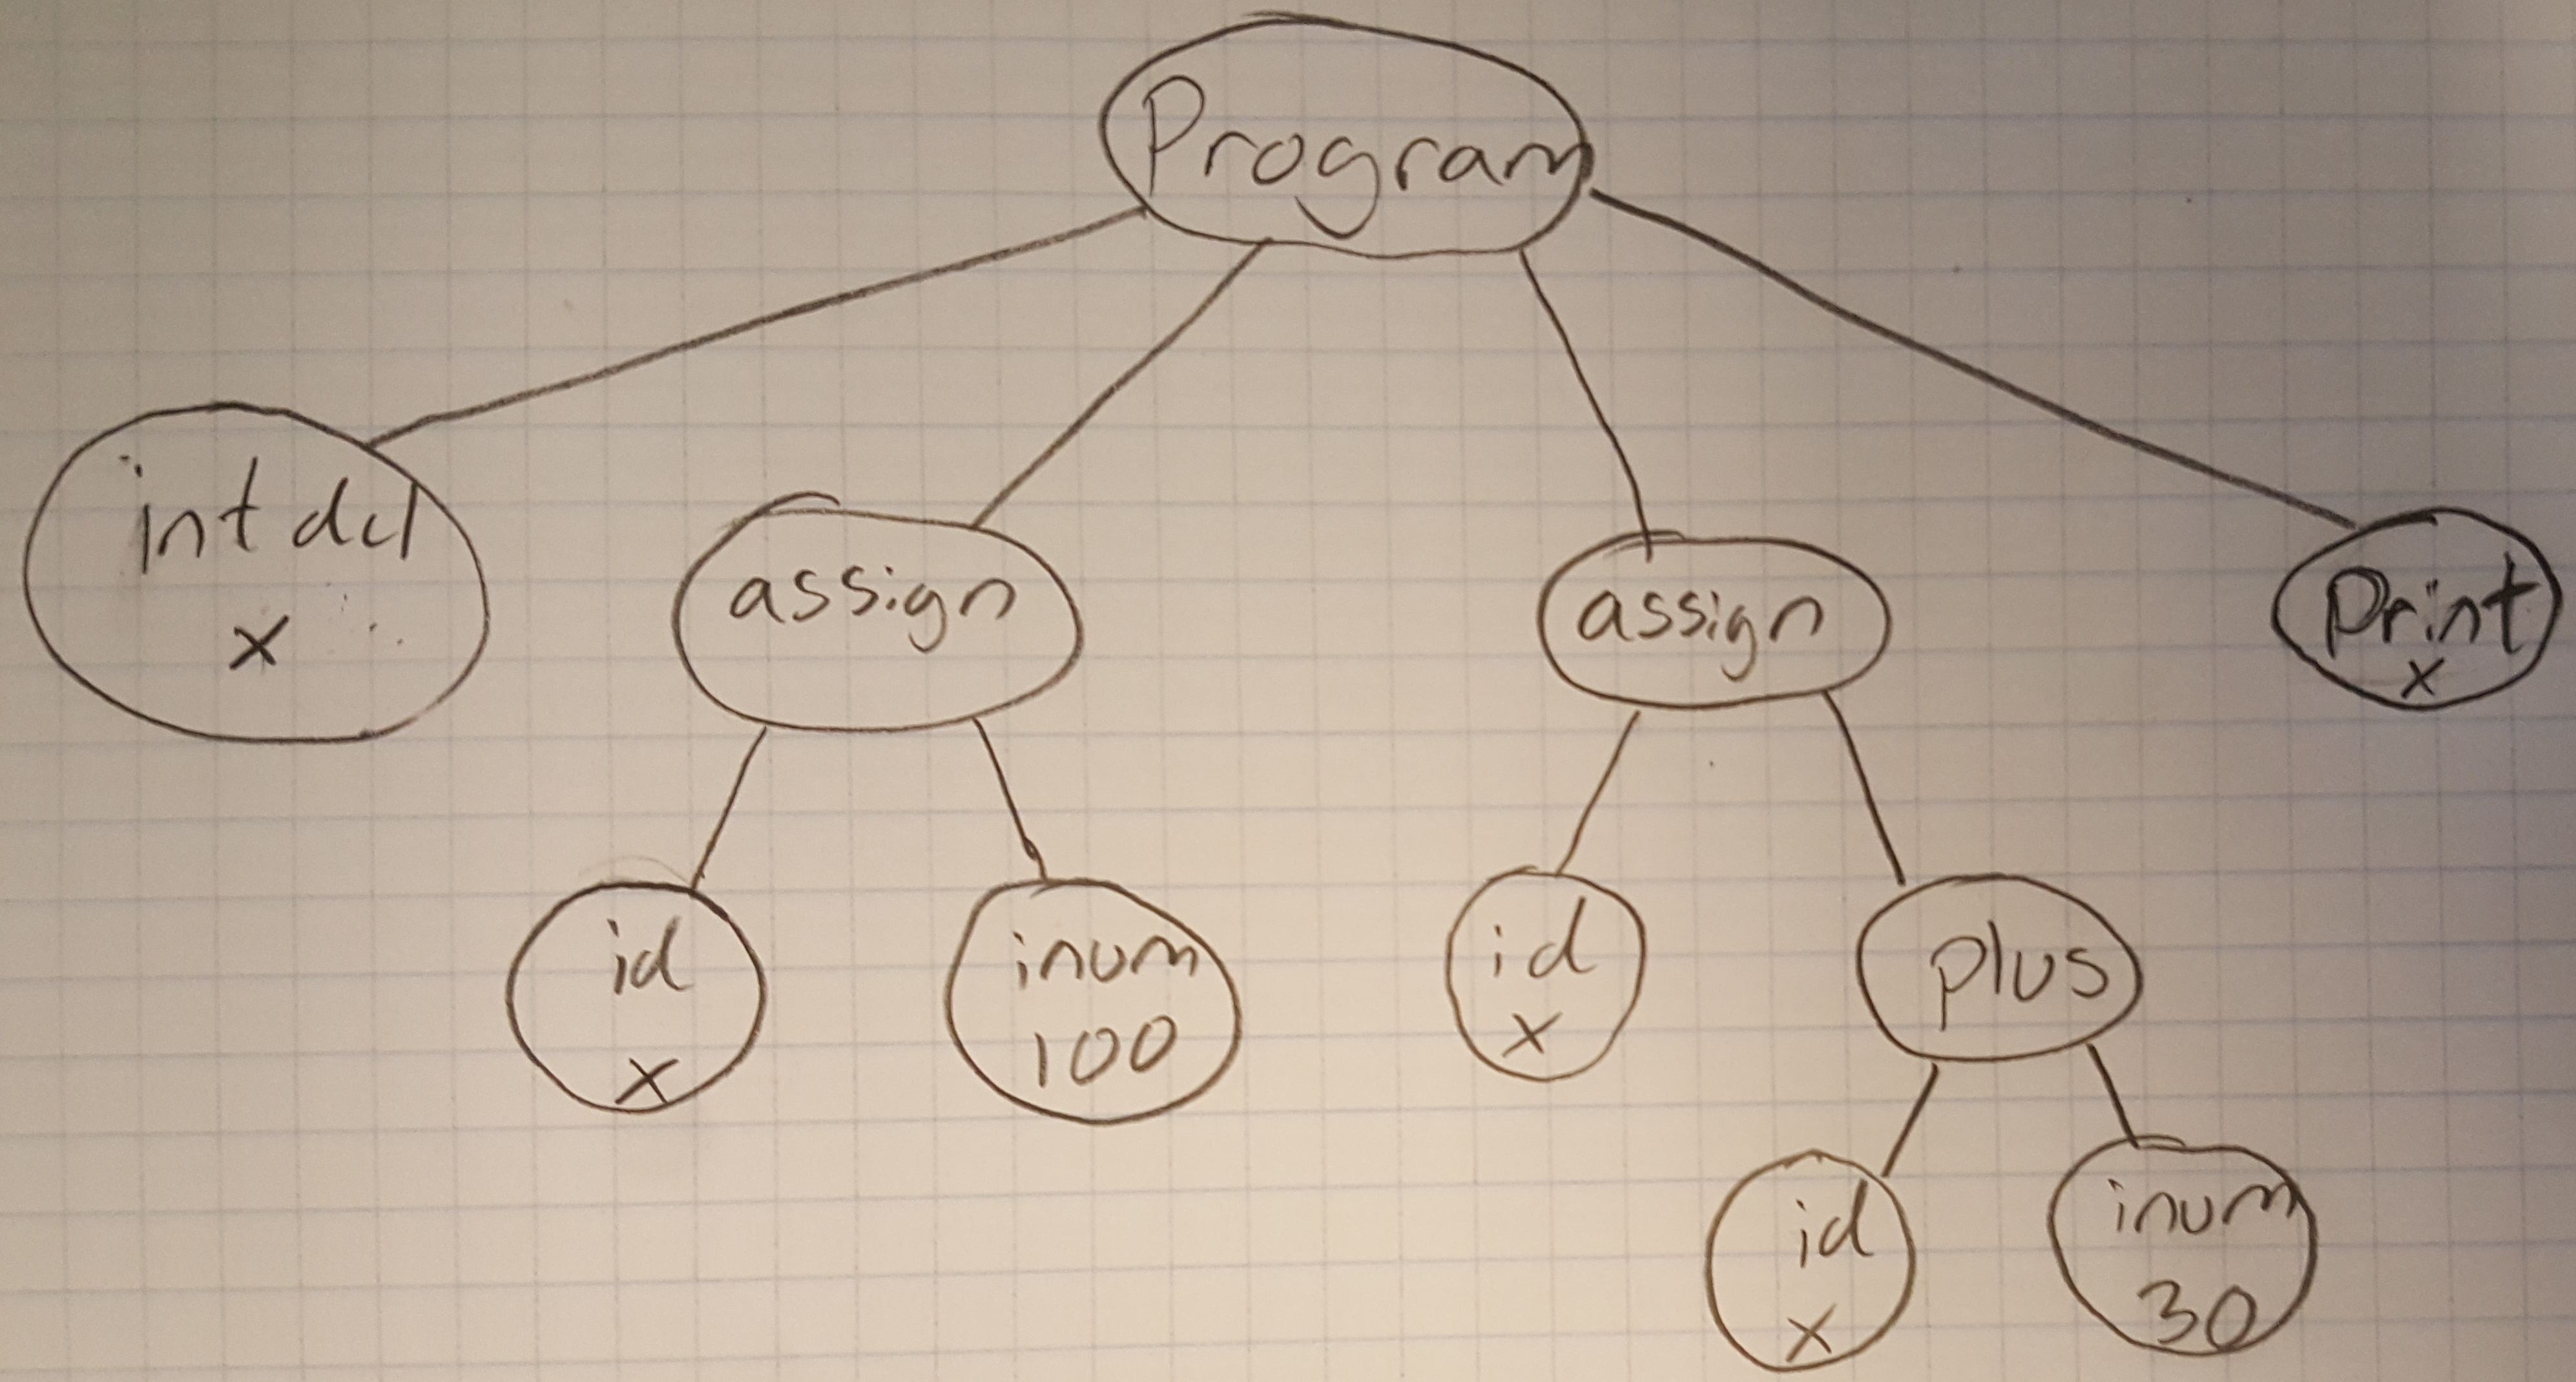 Program
int dcl
x
assign
assign
print
x
id
x
inum
100
id
x
plus
id
x
inum
30